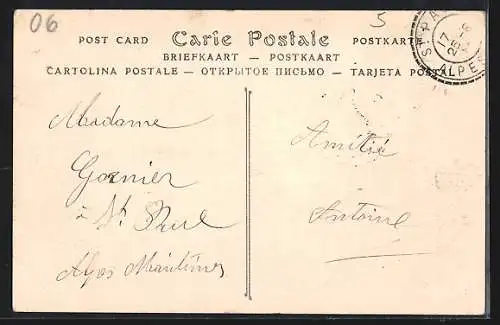 06
5
POST CARD Carte Postale POSTKARTE
BRIEFKAART — POSTKAART
CARTOLINA POSTALE — ОТКРЫТОЕ ПИСЬМО — TARJETA POSTAL
ST PA
17
ALPES
Madame
Garnier
à St
Alpes Maritimes
Amitié
Antoine